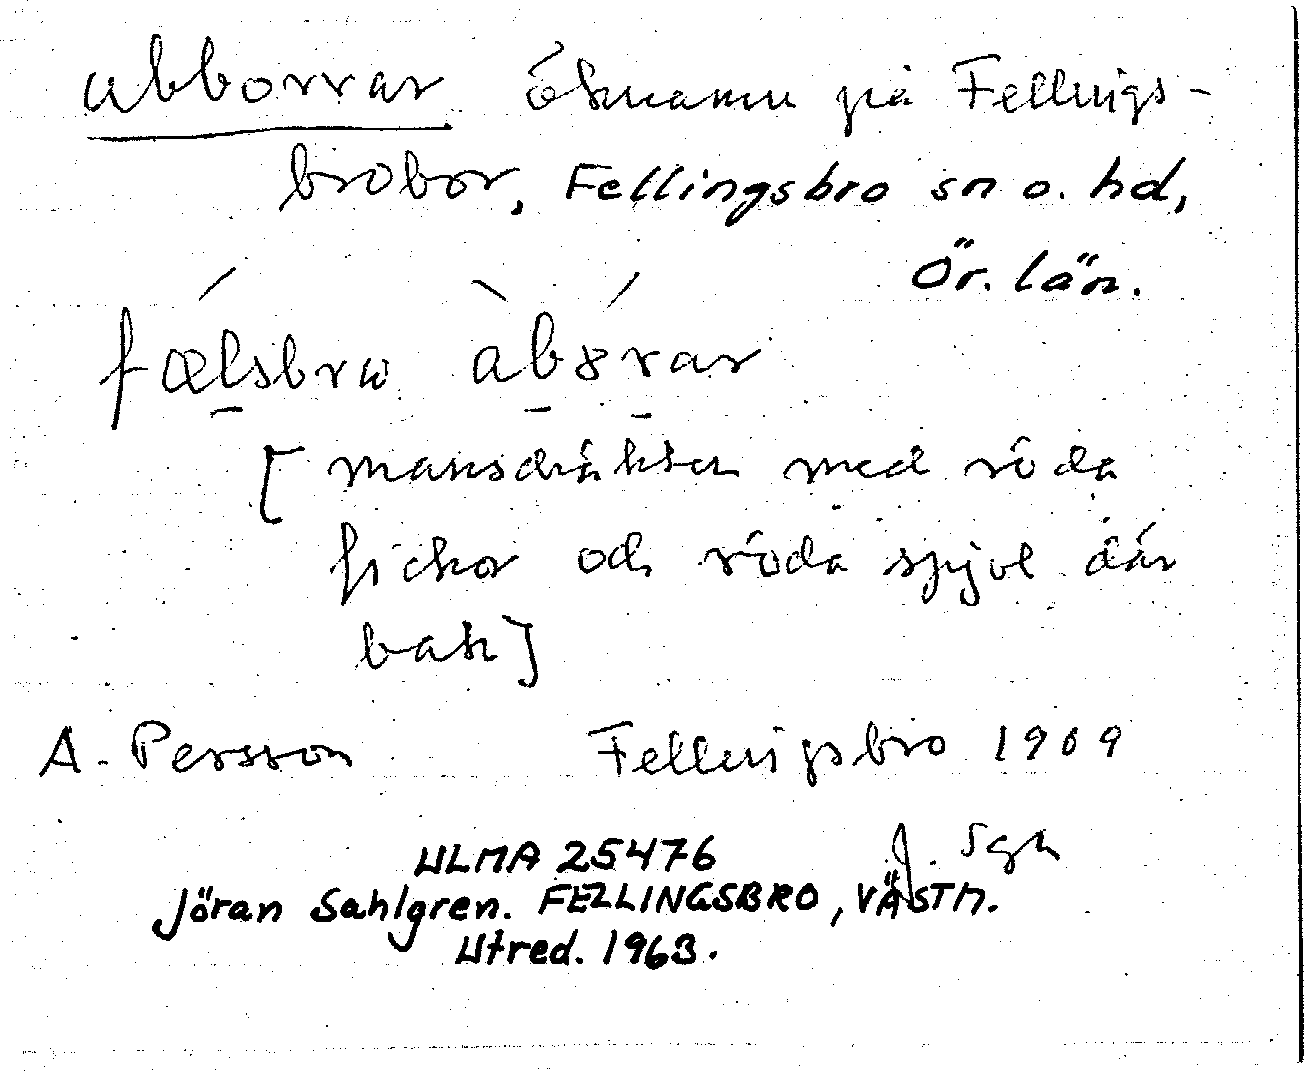 abborrar Öknamn på Fellings-
brobor, Fellingsbro sn o. hd,
Ör. län.
fælsbrω àbȣ́rar
[mansdräkten med röda
fickor och röda spjol där
bak]
A. Persson Fellingsbro 1909
J. Sgn
ULMA 25476
Jöran Sahlgren. FELLINGSBRO, VÄSTM.
Utred. 1963.